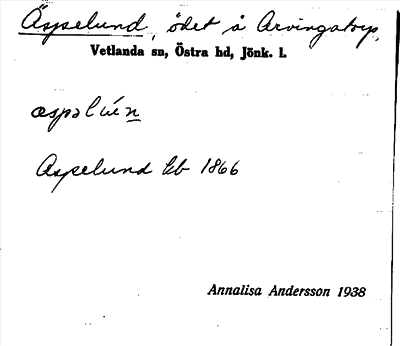 Äspelund, ödet å Arvingatorp,
Vetlanda sn, Östra hd, Jönk. l.
æspəlún
Aspelund kb 1866
Annalisa Andersson 1938